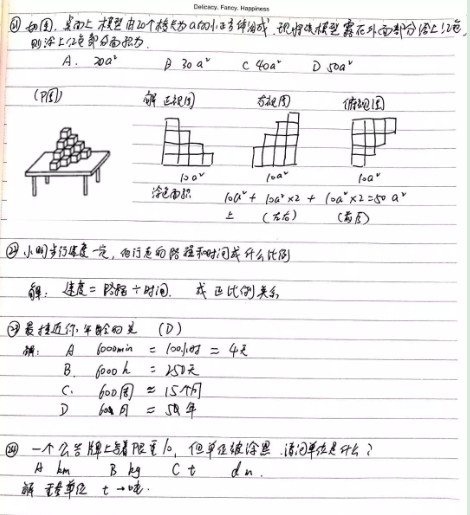 Delicacy. Fancy. Happiness
㉑ 如图，桌面上模型由20个棱长为a的小正方体组成，现将该模型露在外面部分涂上红色，
则涂上红色部分面积为
A. 20a² B 30a² C 40a² D 50a²
(P图) 解 正视图 右视图 俯视图
10a² 10a² 10a²
涂色面积 10a² + 10a²×2 + 10a²×2 = 50 a²
上 (左右) (前后)
㉒ 小明步行速度一定，他行走的路程和时间成什么比例
解: 速度 = 路程 ÷ 时间. 成正比例关系
最接近你年龄的是 (D)
解: A 6000min = 100小时 = 4天
B. 6000 h = 250天
C. 600周 ≈ 15个月
D 600月 = 50年
㉔ 一个公告牌上写着限重10，但单位被涂黑.请问单位是什么？
A km B kg C t d m.
解 重量单位 t → 吨.